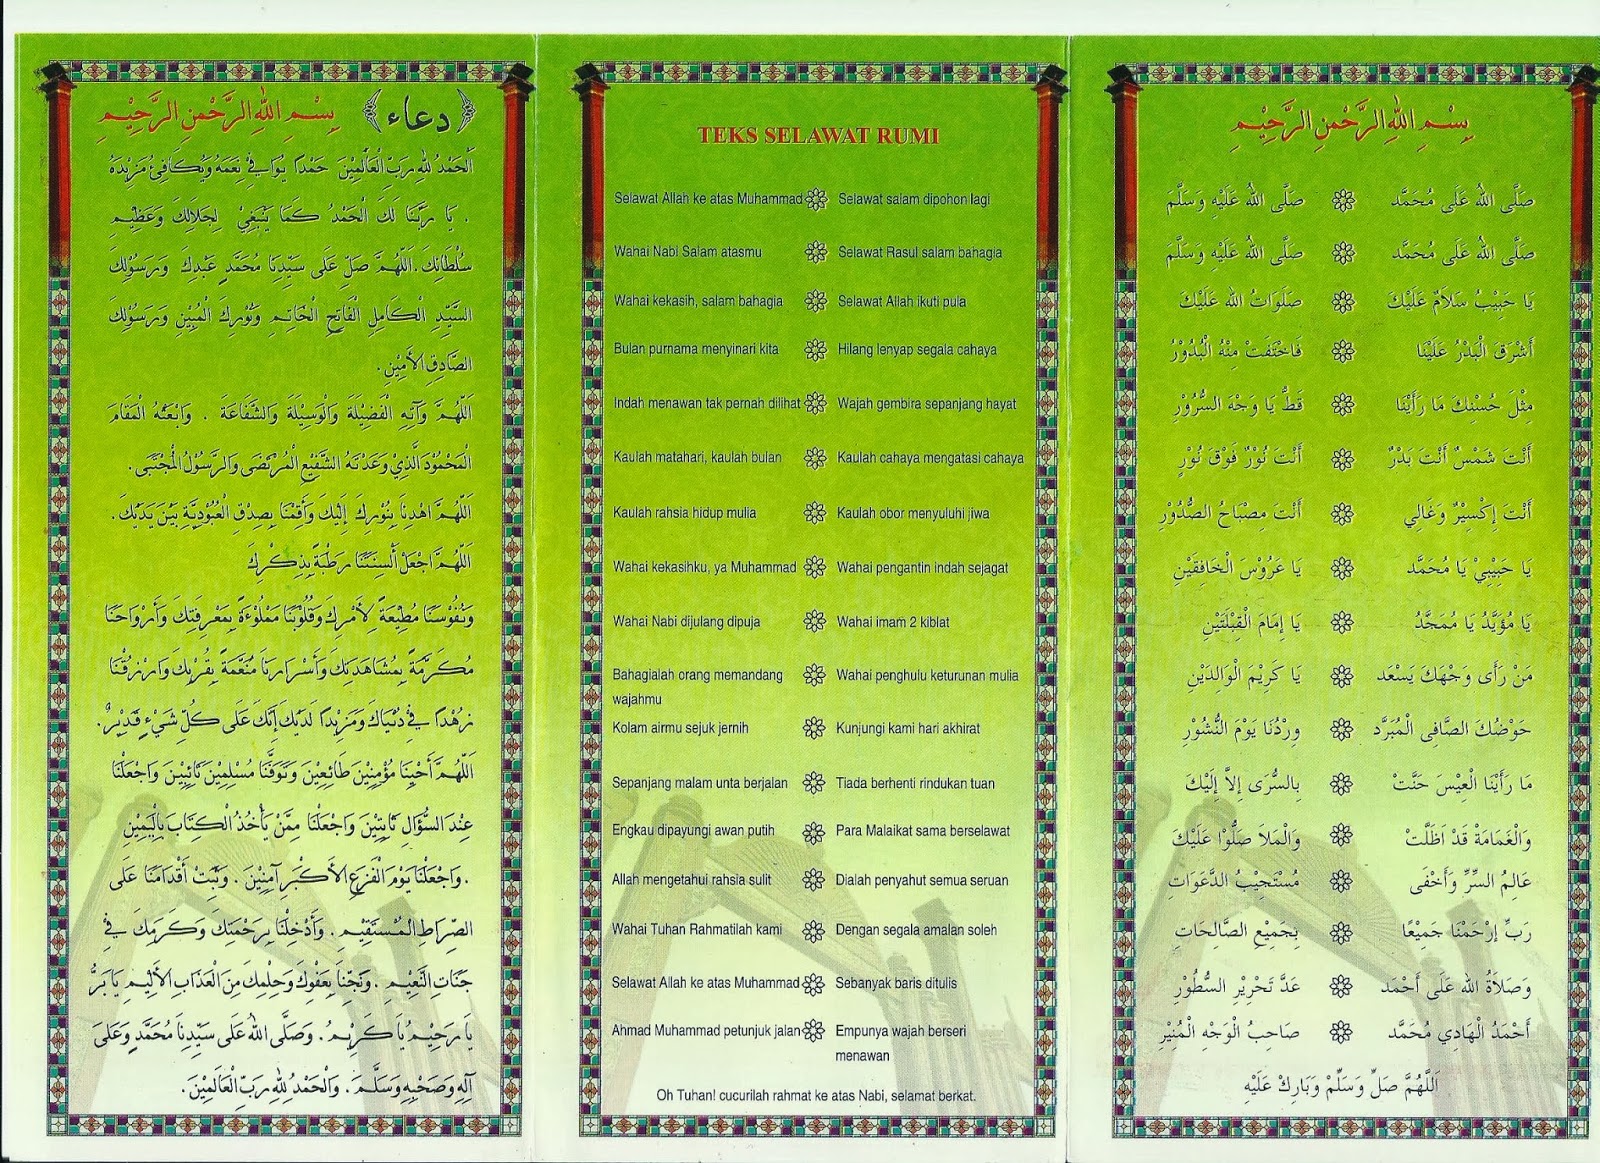 ﴿دعاء﴾ بِسْمِ اللهِ الرَّحْمنِ الرَّحِيْمِ
اَلْحَمْدُ لِلّٰهِ رَبِّ الْعَالَمِيْنَ حَمْدًا يُوَافِيْ نِعَمَهُ وَيُكَافِئُ مَزِيْدَهُ
. يَا رَبَّنَا لَكَ الْحَمْدُ كَمَا يَنْبَغِيْ لِجَلَالِكَ وَعَظِيْمِ
سُلْطَانِكَ.اَللّٰهُمَّ صَلِّ عَلَى سَيِّدِنَا مُحَمَّدٍ عَبْدِكَ وَرَسُوْلِكَ
السَّيِّدِ الْكَامِلِ الْفَاتِحِ الْخَاتِمِ وَنُوْرِكَ الْمُبِيْنِ وَرَسُوْلِكَ
الصَّادِقِ الأَمِيْنِ.
اَللّٰهُمَّ وَآتِهِ الْفَضِيْلَةَ وَالْوَسِيْلَةَ وَالشَّفَاعَةَ . وَابْعَثْهُ الْمَقَامَ
الْمَحْمُوْدَ الَّذِيْ وَعَدْتَهُ الشَّفِيْعِ الْمُرْتَضَى وَالرَّسُوْلُ الْمُجْتَبَى.
اَللّٰهُمَّ اهْدِنَا بِنُوْرِكَ إِلَيْكَ وَأَقِمْنَا بِصِدْقِ الْعُبُوْدِيَّةِ بَيْنَ يَدَيْكَ.
اَللّٰهُمَّ اجْعَلْ أَلْسِنَتَنَا رَطْبَةً بِذِكْرِكَ
وَنُفُوْسَنَا مُطِيْعَةً لِأَمْرِكَ وَقُلُوْبَنَا مَمْلُوْءَةً بِمَعْرِفَتِكَ وَأَرْوَاحَنَا
مُكَرَّمَةً بِمُشَاهَدَتِكَ وَأَسْرَارَنَا مُنَعَّمَةً بِقُرْبِكَ وَارْزُقْنَا
زُهْدًا فِيْ دُنْيَاكَ وَمَزِيْدًا لَدَيْكَ إِنَّكَ عَلَى كُلِّ شَيْءٍ قَدِيْرٌ.
اَللّٰهُمَّ أَحْيِنَا مُؤْمِنِيْنَ طَائِعِيْنَ وَتَوَفَّنَا مُسْلِمِيْنَ تَائِبِيْنَ وَاجْعَلْنَا
عِنْدَ السُّؤَالِ ثَابِتِيْنَ وَاجْعَلْنَا مِمَّنْ يَأْخُذُ الْكِتَابَ بِالْيَمِيْنِ
. وَاجْعَلْنَا يَوْمَ الْفَزَعِ الأَكْبَرِ آمِنِيْنَ . وَثَبِّتْ أَقْدَامَنَا عَلَى
الصِّرَاطِ الْمُسْتَقِيْمِ . وَأَدْخِلْنَا بِرَحْمَتِكَ وَكَرَمِكَ فِيْ
جَنَّاتِ النَّعِيْمِ . وَنَجِّنَا بِعَفْوِكَ وَحِلْمِكَ مِنَ الْعَذَابِ الأَلِيْمِ يَا بَرُّ
يَا رَحِيْمُ يَا كَرِيْمُ . وَصَلَّى اللهُ عَلَى سَيِّدِنَا مُحَمَّدٍ وَعَلَى
آلِهِ وَصَحْبِهِ وَسَلَّمَ . وَالْحَمْدُ لِلّٰهِ رَبِّ الْعَالَمِيْنَ .
TEKS SELAWAT RUMI
Selawat Allah ke atas Muhammad Selawat salam dipohon lagi
Wahai Nabi Salam atasmu Selawat Rasul salam bahagia
Wahai kekasih, salam bahagia Selawat Allah ikuti pula
Bulan purnama menyinari kita Hilang lenyap segala cahaya
Indah menawan tak pernah dilihat Wajah gembira sepanjang hayat
Kaulah matahari, kaulah bulan Kaulah cahaya mengatasi cahaya
Kaulah rahsia hidup mulia Kaulah obor menyuluhi jiwa
Wahai kekasihku, ya Muhammad Wahai pengantin indah sejagat
Wahai Nabi dijulang dipuja Wahai imam 2 kiblat
Bahagialah orang memandang Wahai penghulu keturunan mulia
wajahmu
Kolam airmu sejuk jernih Kunjungi kami hari akhirat
Sepanjang malam unta berjalan Tiada berhenti rindukan tuan
Engkau dipayungi awan putih Para Malaikat sama berselawat
Allah mengetahui rahsia sulit Dialah penyahut semua seruan
Wahai Tuhan Rahmatilah kami Dengan segala amalan soleh
Selawat Allah ke atas Muhammad Sebanyak baris ditulis
Ahmad Muhammad petunjuk jalan Empunya wajah berseri
menawan
Oh Tuhan! cucurilah rahmat ke atas Nabi, selamat berkat.
بِسْمِ اللهِ الرَّحْمنِ الرَّحِيْمِ
صَلَّى اللهُ عَلَى مُحَمَّد صَلَّى اللهُ عَلَيْهِ وَسَلَّمَ
صَلَّى اللهُ عَلَى مُحَمَّد صَلَّى اللهُ عَلَيْهِ وَسَلَّمَ
يَا حَبِيْبُ سَلاَمٌ عَلَيْكَ صَلَوَاتُ الله عَلَيْكَ
أَشْرَقَ الْبَدْرُ عَلَيْنَا فَاخْتَفَتْ مِنْهُ الْبُدُوْرُ
مِثْلَ حُسْنِكَ مَا رَأَيْنَا قَطُّ يَا وَجْهَ السُّرُوْرِ
أَنْتَ شَمْسٌ أَنْتَ بَدْرٌ أَنْتَ نُوْرٌ فَوْقَ نُوْرٍ
أَنْتَ إِكْسِيْرٌ وَغَالِي أَنْتَ مِصْبَاحُ الصُّدُوْرِ
يَا حَبِيْبِيْ يَا مُحَمَّد يَا عَرُوْسَ الْخَافِقَيْنِ
يَا مُؤَيَّدُ يَا مُمَجَّدُ يَا إِمَامَ الْقِبْلَتَيْنِ
مَنْ رَأَى وَجْهَكَ يَسْعَد يَا كَرِيْمَ الْوَالِدَيْنِ
حَوْضُكَ الصَّافِى الْمُبَرَّد وِرْدُنَا يَوْمَ النُّشُوْرِ
مَا رَأَيْنَا الْعِيْسَ حَنَّتْ بِالسُّرَى إِلاَّ إِلَيْكَ
وَالْغَمَامَةْ قَدْ اَظَلَّتْ وَالْمَلاَ صَلُّوْا عَلَيْكَ
عَالِمُ السِّرِّ وَأَخْفَى مُسْتَجِيْبُ الدَّعَوَاتِ
رَبِّ إِرْحَمْنَا جَمِيْعًا بِجَمِيْعِ الصَّالِحَاتِ
وَصَلاَةُ الله عَلَى أَحْمَد عَدَّ تَحْرِيْرِ السُّطُوْرِ
أَحْمَدُ الْهَادِي مُحَمَّد صَاحِبُ الْوَجْهِ الْمُنِيْرِ
اَللّهُمَّ صَلِّ وَسَلِّمْ وَبَارِكْ عَلَيْهِ